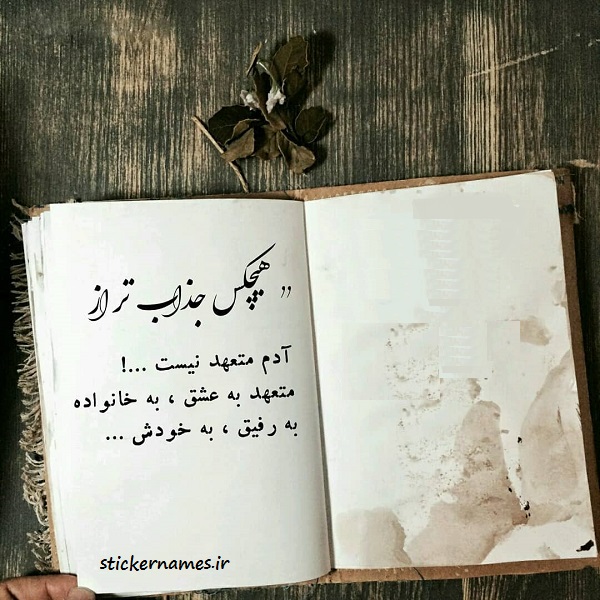 " هیچکس جذاب تر از
آدم متعهد نیست ...!
متعهد به عشق ، به خانواده
به رفیق ، به خودش ...
stickernames.ir